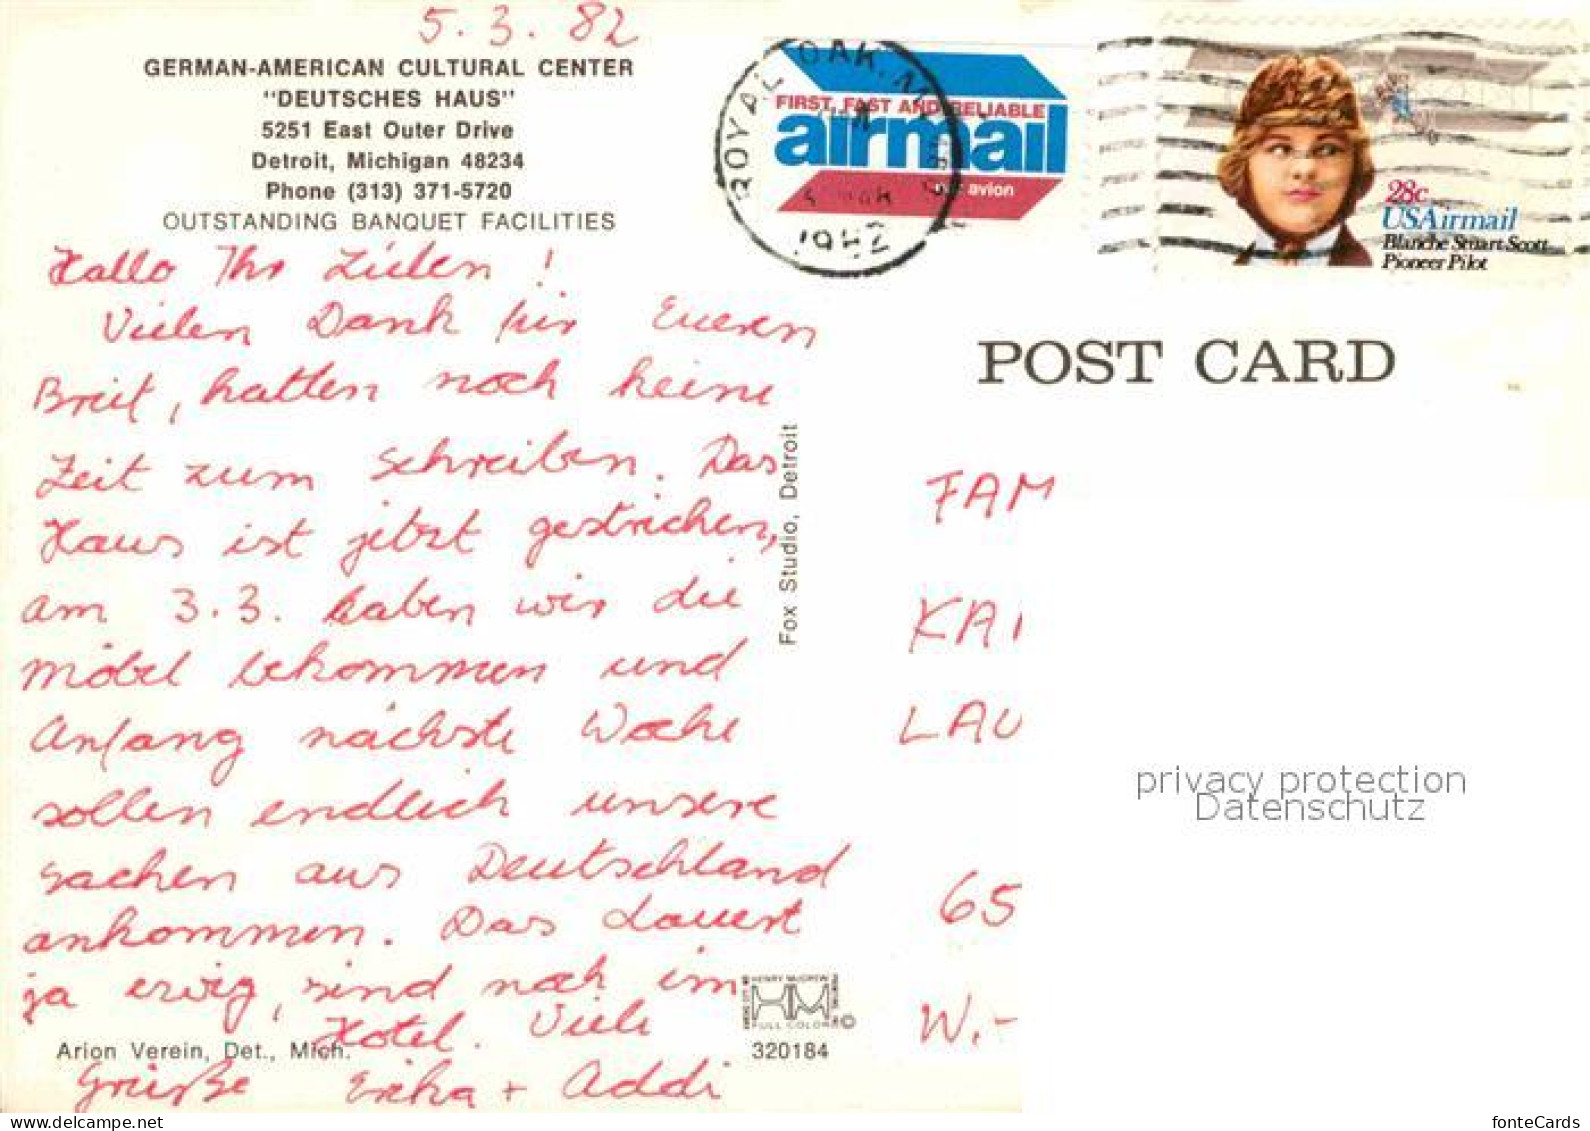 5.3.82
GERMAN-AMERICAN CULTURAL CENTER
"DEUTSCHES HAUS"
5251 East Outer Drive
Detroit, Michigan 48234
Phone (313) 371-5720
OUTSTANDING BANQUET FACILITIES
Hallo Ihr Lieben !
Vielen Dank für Eueren
Brief, hatten noch keine
Zeit zum schreiben. Das
Haus ist jetzt gestrichen,
am 3.3. haben wir die
Möbel bekommen und
Anfang nächste Woche
sollen endlich unsere
sachen aus Deutschland
ankommen. Das dauert
ja ewig, sind noch im
Hotel. Viele
Grüße Erika + Addi
Arion Verein, Det., Mich.
Fox Studio, Detroit
HENRY McGREW
FULL COLOR
©
320184
ROYAL OAK, MI
5 MAR
1982
FIRST, FAST AND RELIABLE
airmail
par avion
28c
USAirmail
Blanche Stuart Scott
Pioneer Pilot
POST CARD
FAM
KAI
LAU
65
W.-
privacy protection
Datenschutz
fonteCards